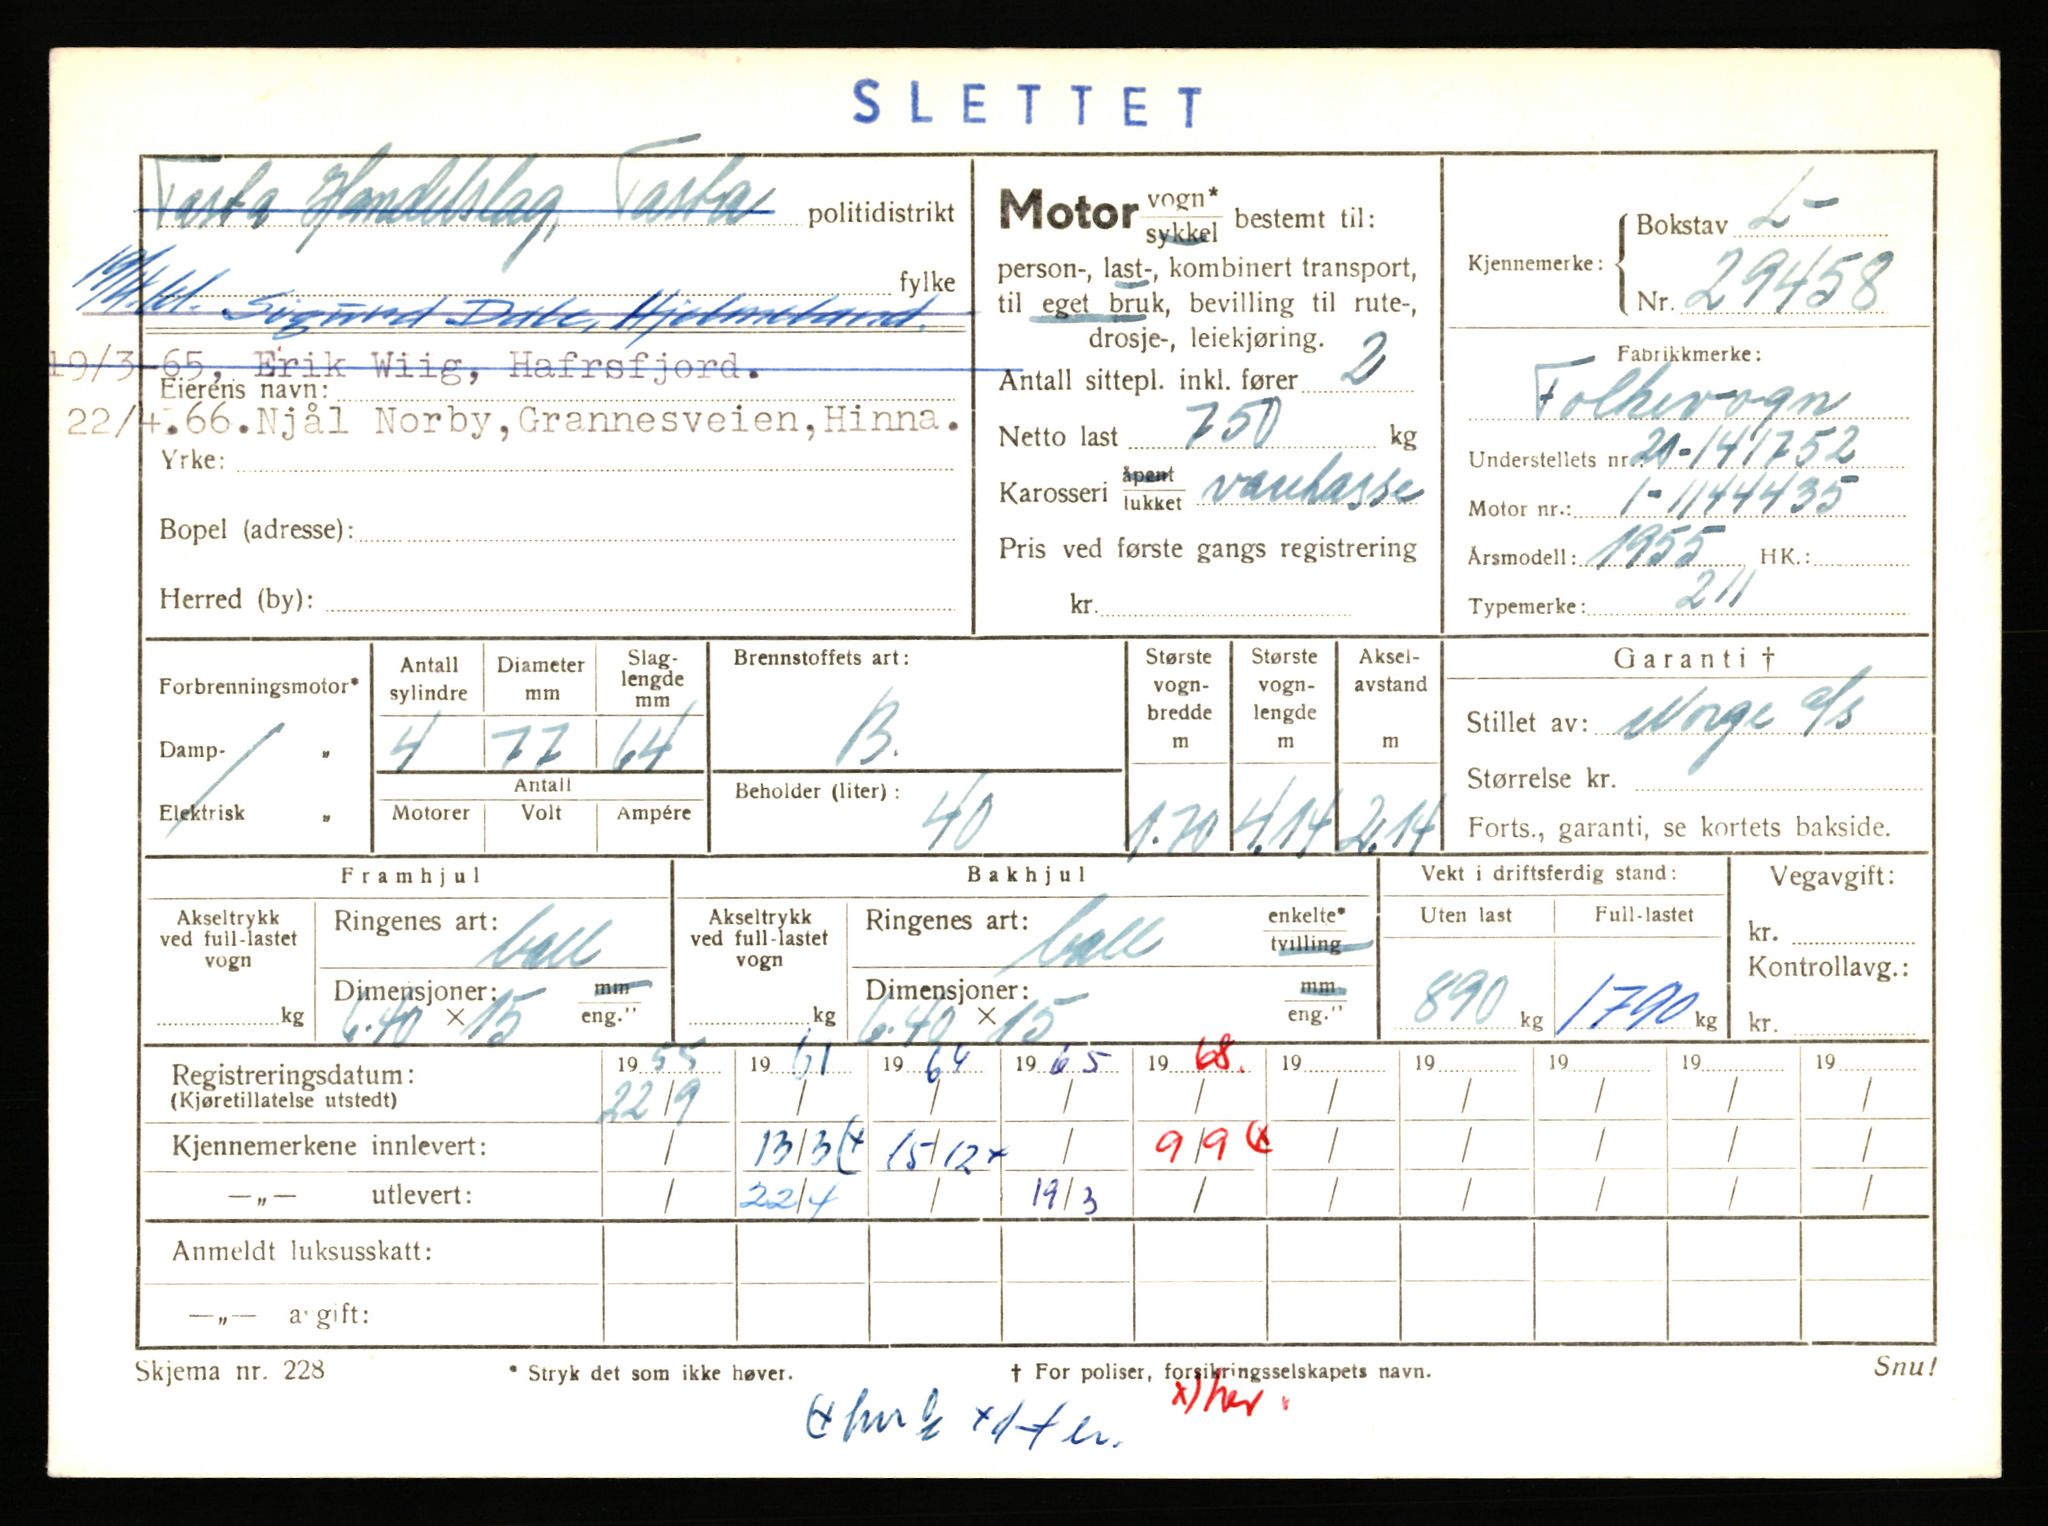 SLETTET
Tasta Handelslag, Tasta politidistrikt
fylke
Sigurd Dale, Hjelmeland.
19/3-65, Erik Wiig, Hafrsfjord.
Eierens navn:
22/4.66. Njål Norby, Grannesveien, Hinna.
Yrke:
Bopel (adresse):
Herred (by):
Motor vogn* sykkel bestemt til:
person-, last-, kombinert transport,
til eget bruk, bevilling til rute-,
drosje-, leiekjøring.
Antall sittepl. inkl. fører 2
Netto last 750 kg
Karosseri åpent lukket varekasse
Pris ved første gangs registrering
kr.
Kjennemerke: Bokstav L-
Nr. 29458
Fabrikkmerke:
Folkevogn
Understellets nr.: 20-141752
Motor nr.: 1-1144435
Årsmodell: 1955 HK.:
Typemerke: 211
Forbrenningsmotor*
Damp- „
Elektrisk „
Antall sylindre 4
Diameter mm 77
Slaglengde mm 64
Antall
Motorer Volt Ampére
Brennstoffets art:
B.
Beholder (liter): 40
Største vognbredde m 1.70
Største vognlengde m 4.14
Akselavstand m 2.14
Garanti †
Stillet av: Norge a/s
Størrelse kr.
Forts., garanti, se kortets bakside.
Framhjul
Akseltrykk ved full-lastet vogn
kg
Ringenes art: ball
Dimensjoner: mm
6.40 × 15 eng."
Bakhjul
Akseltrykk ved full-lastet vogn
kg
Ringenes art: ball enkelte* tvilling
Dimensjoner: mm
6.40 × 15 eng."
Vekt i driftsferdig stand:
Uten last Full-lastet
890 kg 1790 kg
Vegavgift:
kr.
Kontrollavg.:
kr.
Registreringsdatum: 19 55 19 61 19 64 19 65 19 68. 19 19 19 19 19
(Kjøretillatelse utstedt) 22/9 / / / / / / / / /
Kjennemerkene innlevert: / 13/3 (x 15/12 x / 9/9 (x / / / / /
—„— utlevert: / 22/4 / 19/3 / / / / / /
Anmeldt luksusskatt:
—„— avgift:
Skjema nr. 228 * Stryk det som ikke høver. † For poliser, forsikringsselskapets navn. Snu!
x) her.